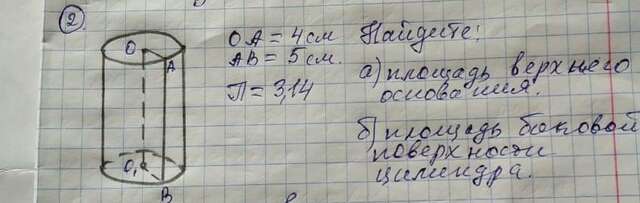 2.
O
A
O₁
B
OA = 4 см
AB = 5 см.
П = 3,14
Найдите:
а) площадь верхнего
основания.
б) площадь боковой
поверхности
цилиндра.